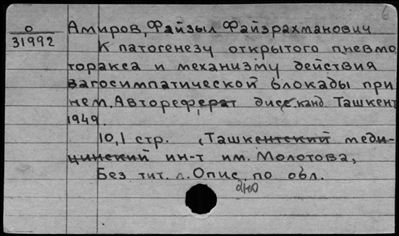 0
31992
Амиров, Файзыл Файзрахманович
К патогенезу открытого пневмо
торакса и механизму действия
вагосимпатической блокады при
нем. Автореферат дисс. канд. Ташкент
1949.
10,1 стр. (Ташкентский меди-
цинский ин-т им. Молотова,
Без тит. л. Опис. по обл.